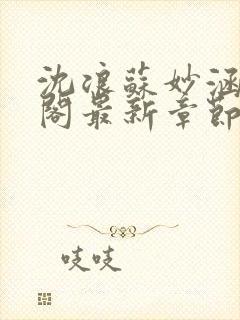 沈浪蘇妙涵
閣最新章節
吱吱